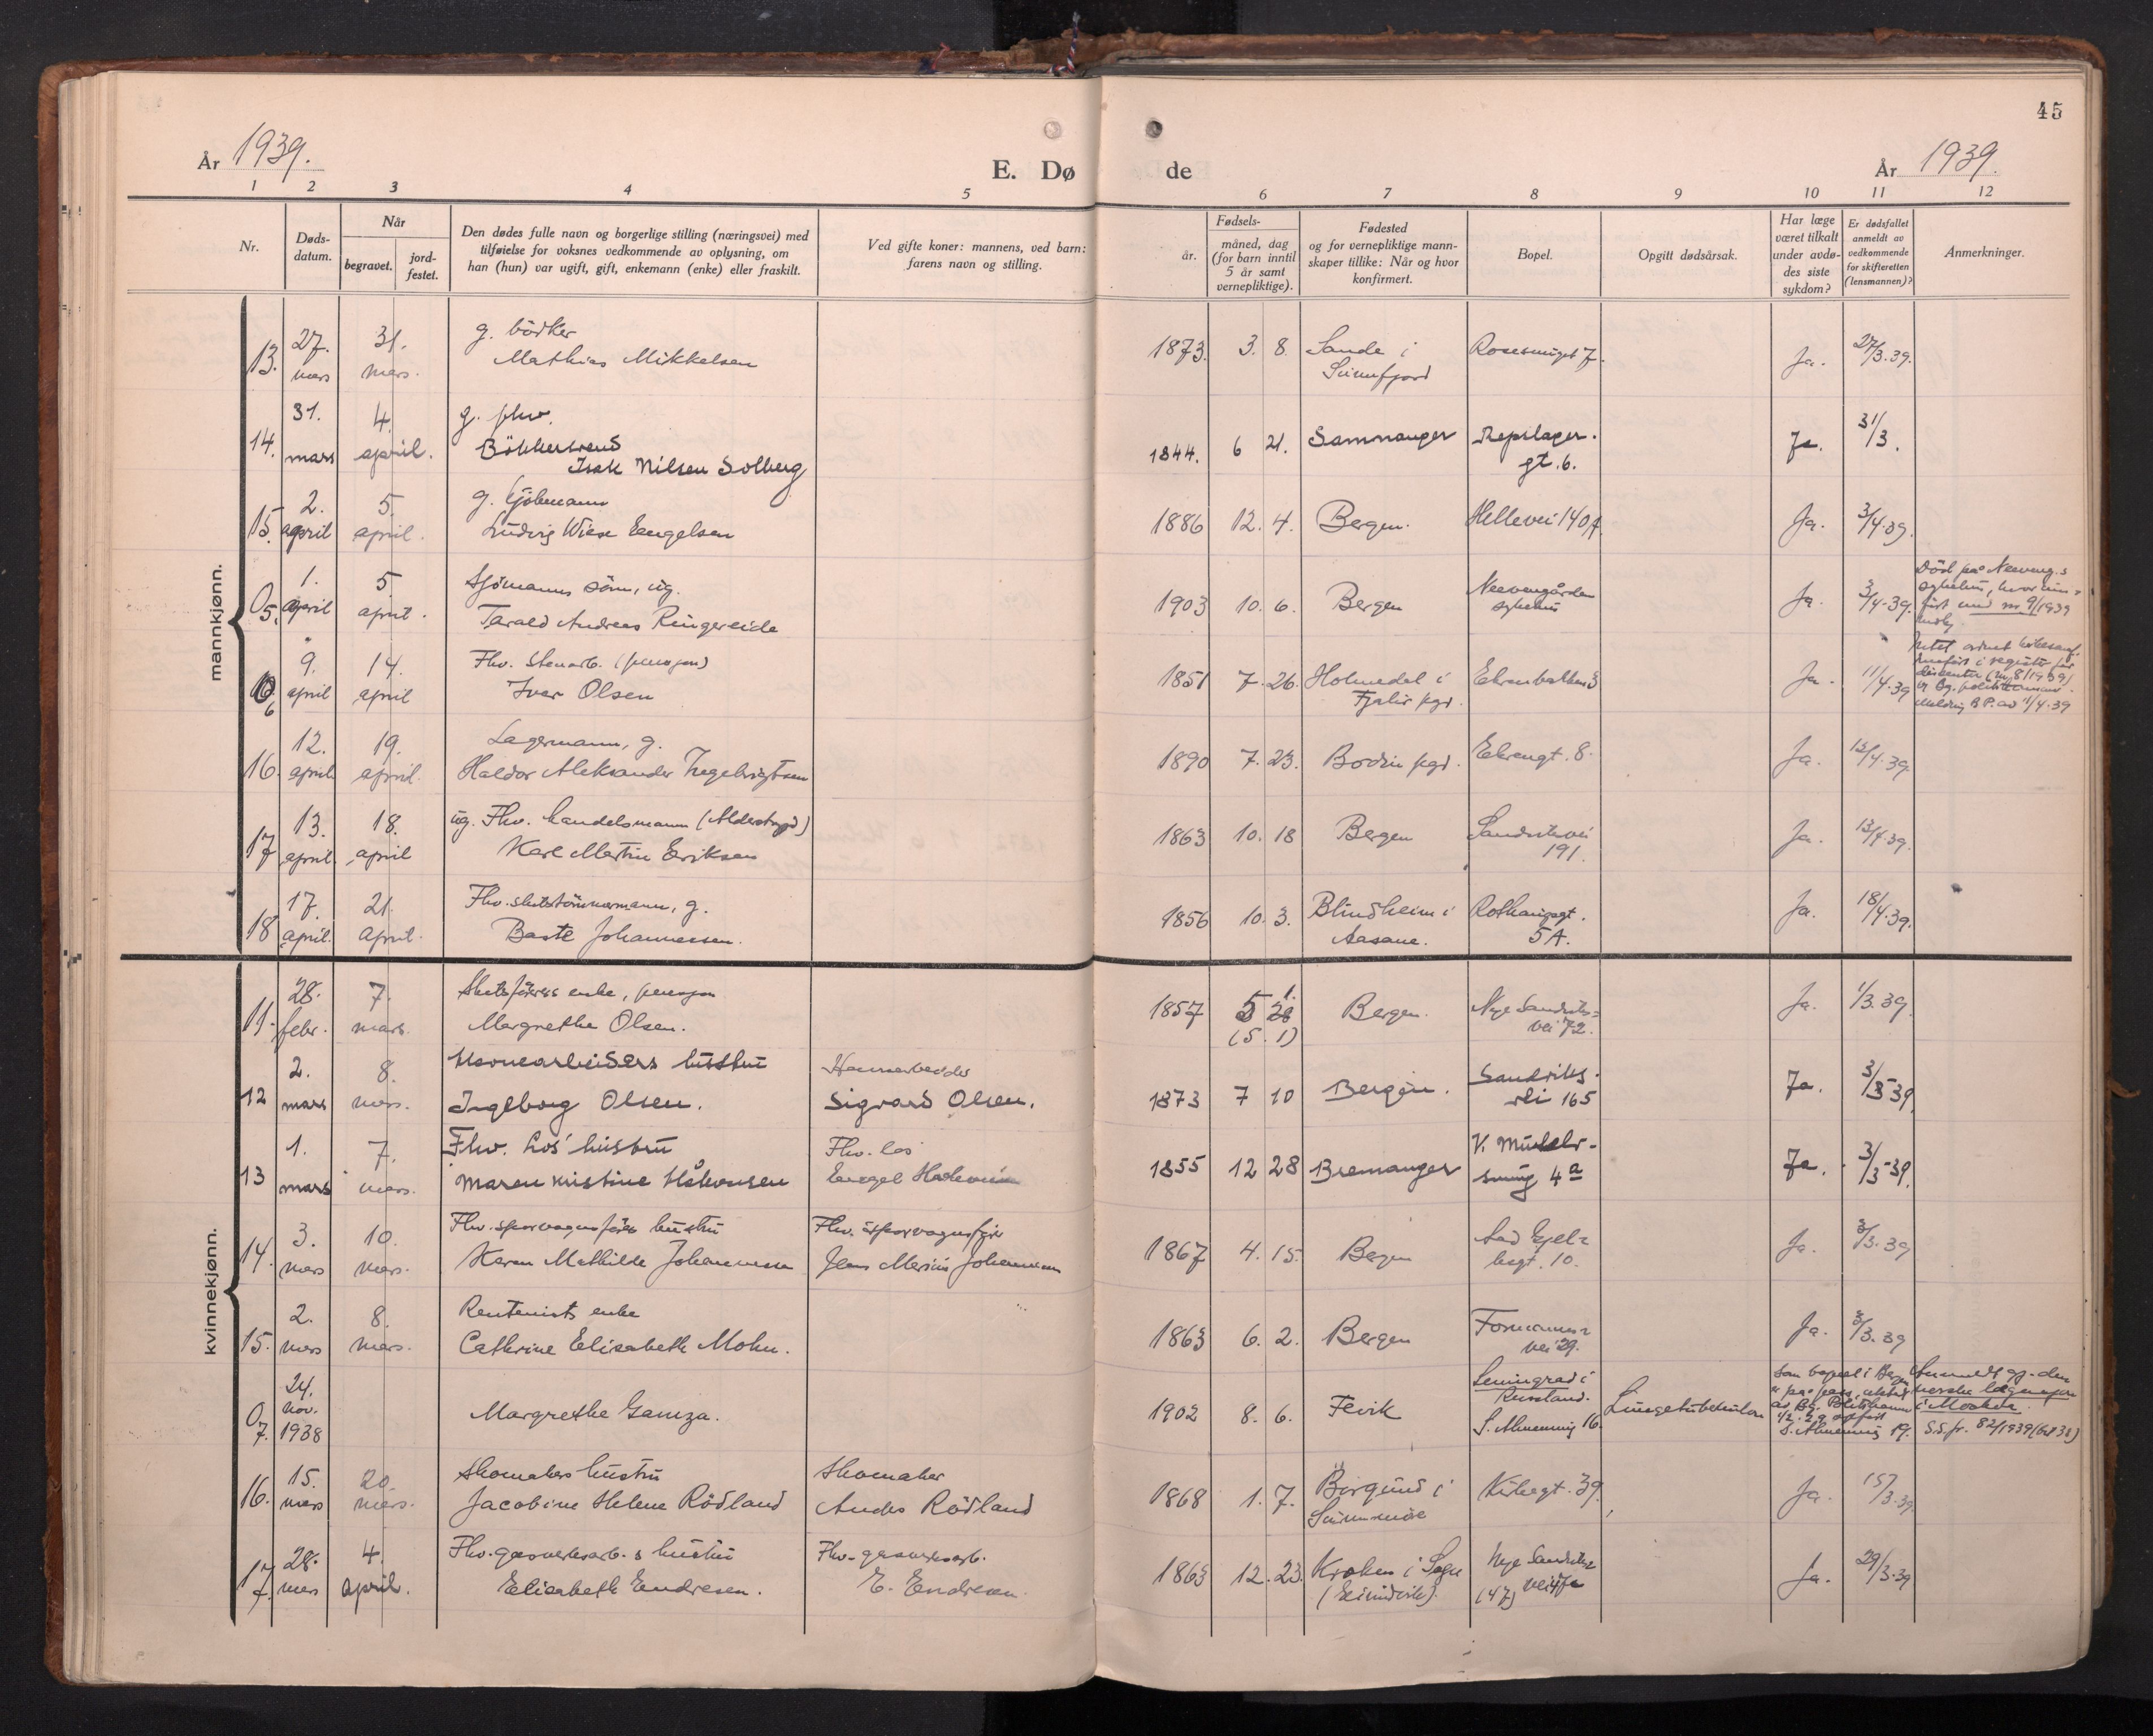 45
År 1939.
E. Dø
de
År 1939.
1 2 3 4 5 6 7 8 9 10 11 12
Nr.
Døds-
datum.
Når
begravet.
jord-
festet.
Den dødes fulle navn og borgerlige stilling (næringsvei) med
tilføielse for voksnes vedkommende av oplysning, om
han (hun) var ugift, gift, enkemann (enke) eller fraskilt.
Ved gifte koner: mannens, ved barn:
farens navn og stilling.
Fødsels-
år.
måned, dag
(for barn inntil
5 år samt
vernepliktige).
Fødested
og for vernepliktige mann-
skaper tillike: Når og hvor
konfirmert.
Bopel.
Opgitt dødsårsak.
Har læge
været tilkalt
under avdø-
des siste
sykdom?
Er dødsfallet
anmeldt av
vedkommende
for skifteretten
(lensmannen)?
Anmerkninger.
mannkjønn.
13. 27. mars 31. mars.
g. bödker
Mathias Mikkelsen
1873. 3. 8. Sande i
Sunnfjord
Rosesmuget 7. Ja. 27/3.39.
14. 31. mars 4. april.
g. fhv.
Bökkersvend
Isak Nilsen Solberg
1844. 6 21. Samnanger Repslager.
gt. 6.
Ja. 31/3.
15. 2. april 5. april.
g. Sjömann
Ludvig Wiese Engelsen
1886 12. 4. Bergen. Hellevei 140A. Ja. 3/4.39.
0 5. 1. april 5 april.
Sjömanns sönn, ug.
Tarald Andreas Ringereide
1903 10. 6. Bergen Neevengården
sykehus
Ja. 3/4.39.
Död på Neeveng.s
sykehus, hvor inn-
fört med nr 9/1939
0 6 9. april 14. april
Fhv. Stenarb. (pensjon)
Iver Olsen
1851 7. 26. Holmedal i
Fjaler pgd.
Ja. 11/4.39
16. 12. april 19. april.
Lagermann, g.
Haldor Aleksander Ingebrigtsen
1890 7. 23. Bodin pgd. Ekrengt. 8. Ja. 13/4.39.
17 13. april 18. april
ug. Fhv. handelsmann (Alderstrygd)
Karl Martin Eriksen
1863 10. 18 Bergen Sandviksvei
191.
Ja. 13/4.39.
18 17. april. 21. april.
Fhv. skibstömmermann, g.
Baste Johannessen.
1856 10. 3. Blindheim i
Aasane.
Rothaugsgt.
5A.
Ja. 18/4.39.
kvinnekjønn.
11. 28. febr. 7. mars.
Skibsförers enke, pensjon
Margrethe Olsen.
1857 5 1.
(5. 1)
Bergen. Nye Sandviks-
vei 72.
Ja. 1/3.39.
12 2. mars 8. mars.
Havnearbeiders hustru
Ingeborg Olsen.
Havnearbeider
Sigvard Olsen.
1873 7 10 Bergen. Sandviks.
vei 165
Ja. 3/3 39.
13 1. mars 7. mars.
Fhv. Los' hustru
Maren Kristine Håkonsen
Fhv. los
1855 12 28 Bremanger V. Murals-
smug 4a
Ja. 3/3-39.
14. 3. mars 10. mars.
Fhv. sporvognsförers hustru
Karen Mathilde Johannessen
Fhv. sporvognsförer
Jens Marius Johannessen
1867 4. 15. Bergen Aad Gjel-
lesgt. 10.
Ja. 3/3.39
15. 2. mars 8. mars.
Rentenists enke
Cathrine Elisabeth Mohn.
1863 6. 2. Bergen Formanns-
vei 29.
Ja. 3/3.39
0 7. 24. nov. 1938
Margrethe Gamza.
1902 8. 6. Fevik Leningrad i
Russland.
S. Almenning 16.
Lungetuberkulose
Anmeldt gj. den
norske legasjon
i Moskva.
S.S. fr. 82/1939
16. 15. mars 20. mars.
Skomakers hustru
Jacobine Helene Rödland
Skomaker
Anders Rödland
1868 1. 7. Borgund i
Sunnmöre
Kirkegt. 39. Ja. 15/3.39
17. 28. mars 4. april.
Fhv. gasverksarb.s hustru
Elisabeth Endresen.
Fhv. gasverksarb.
E. Endresen
1863 12. 23. Kroken i Sogn
(Eivindvik).
Nye Sandviks-
(47)
Ja. 29/3.39